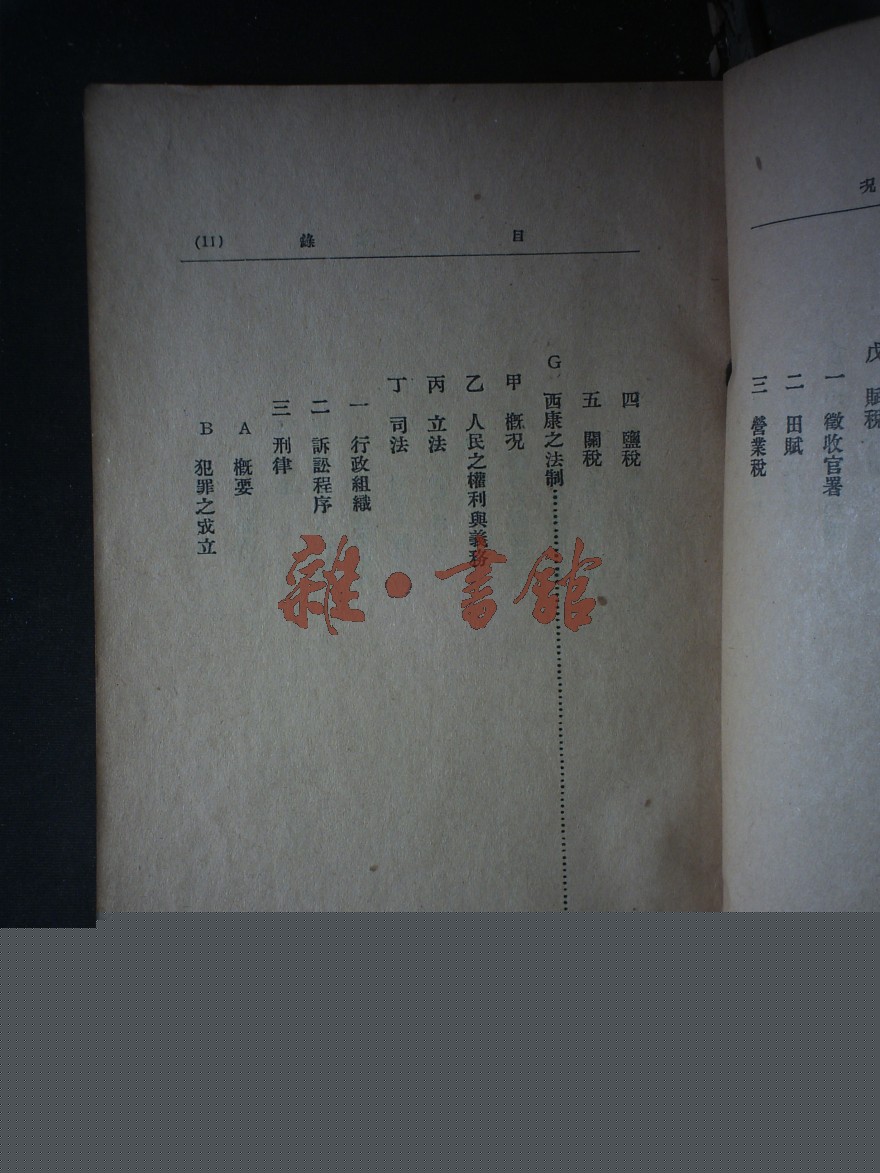 况
戊 賦稅
一 徵收官署
二 田賦
三 營業稅
目 錄 (11)
四 鹽稅
五 關稅
G 西康之法制
甲 概况
乙 人民之權利與義務
丙 立法
丁 司法
一 行政組織
二 訴訟程序
三 刑律
A 概要
B 犯罪之成立
雜·書館